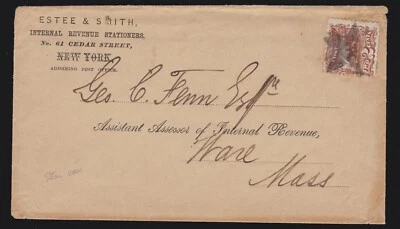 ESTEE & SMITH,
INTERNAL REVENUE STATIONERS,
No. 61 CEDAR STREET,
NEW YORK.
ADJOINING POST OFFICE.
Geo. C. Fenn Esqr
Assistant Assessor of Internal Revenue,
Ware
Mass